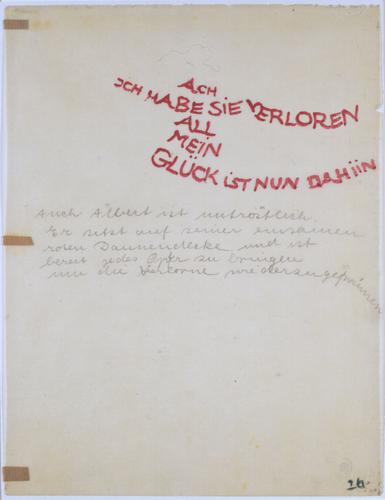 ACH
ICH HABE SIE VERLOREN
ALL
MEIN
GLÜCK iST NUN DAHiiN
Auch Albert ist untröstlich.
Er sitzt auf seiner einsamen
roten Daunendecke und ist
bereit jedes Opfer zu bringen
um die Verlorne wiederzugewinnen